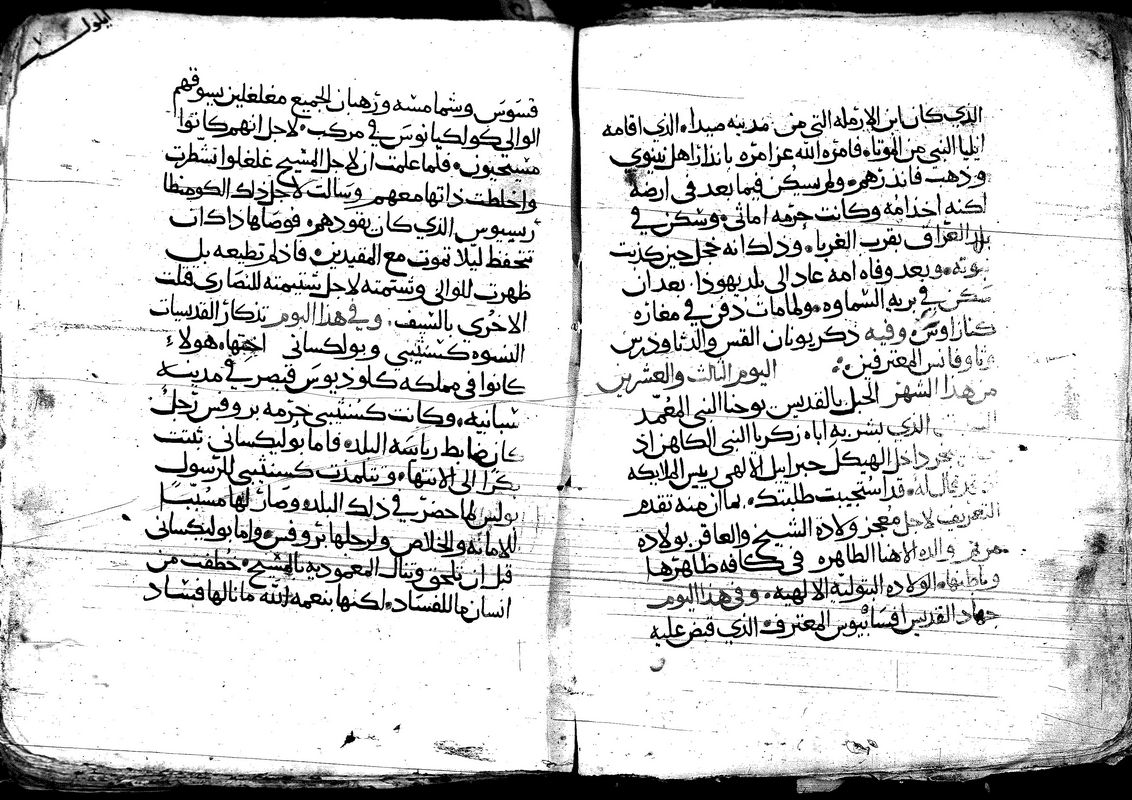 الذي كان ابن الارمله التي من مدينه صيدا. الذي اقامه
ايليا النبي من الموتا. فامره الله عز امره بانذار اهل نينوي
وذهب فانذرهم. ولم يسكن فيما بعد في ارضه
لكنه اخذ امه وكانت حرمه اماثي. وسكن في
العراق بقرب الغربا. وذلك انه خجل حين كذبت
نبوته. وبعد وفاه امه عاد الى بلد يهوذا. بعد ان
سكن في بريه السماوه. ولما مات دفن في مغاره
كنازاوس. وفيه ذكر يونان القس والدثاودرس
وفانس المعترفين. اليوم الثالث والعشرين
من هذا الشهر الحبل بالقديس يوحنا النبي المعمد
الذي بشر به اباه زكريا النبي الكاهن اذ
داخل الهيكل جبرايل الالهي رييس الملايكه
قد استجيبت طلبتك. لما ان منه تقدم
التعريف لاجل معجز ولادة الشيخ والعاقر بولادة
والدة الاهنا الطاهره في كافه ظاهرها
وباطنها. الولاده البتوليه الالهيه. وفي هذا اليوم
جهاد القديس افسابيوس المعترف الذي قبض عليه
ايلول
قسوس وشمامسه ورهبان الجميع مغلغلين يسوقهم
الوالى كولكيانوس في مركب. لاجل انهم كانوا
مسيحيون. فلما علمت ان لاجل المسيح غلغلوا نشطت
واخلطت ذاتها معهم وسالت لاجل ذلك الكومنطا
ريسيوس الذي كان يقودهم. فوصاها ذاك ان
تتحفظ ليلا تموت مع المقيدين. فاذ لم تطيعه بل
ظهرت للوالى وشتمته لاجل شتيمته للنصارى قتلت
الاخرى بالسيف. وفي هذا اليوم تذكار القديسات
النسوه كسنثيبي وبولكساني اختها. هولاء
كانوا في مملكه كلوديوس قيصر في مدينه
سبانيه. وكانت كسنثيبي حرمه بروفس رجل
كان ضابط رياسة البلد. فاما بوليكساني ثبتت
بكرا الى الانتها. وتتلمدت كسنثيبي للرسول
بولس لما حضر في ذلك البلد. وصار لها مسببا
للامانه والخلاص ولرجلها بروفس. واما بوليكساني
قبل ان تلحق وتنال المعموديه بالمسيح. خطفت من
انسان ما للفساد. لكنها بنعمه الله ما نالها فساد